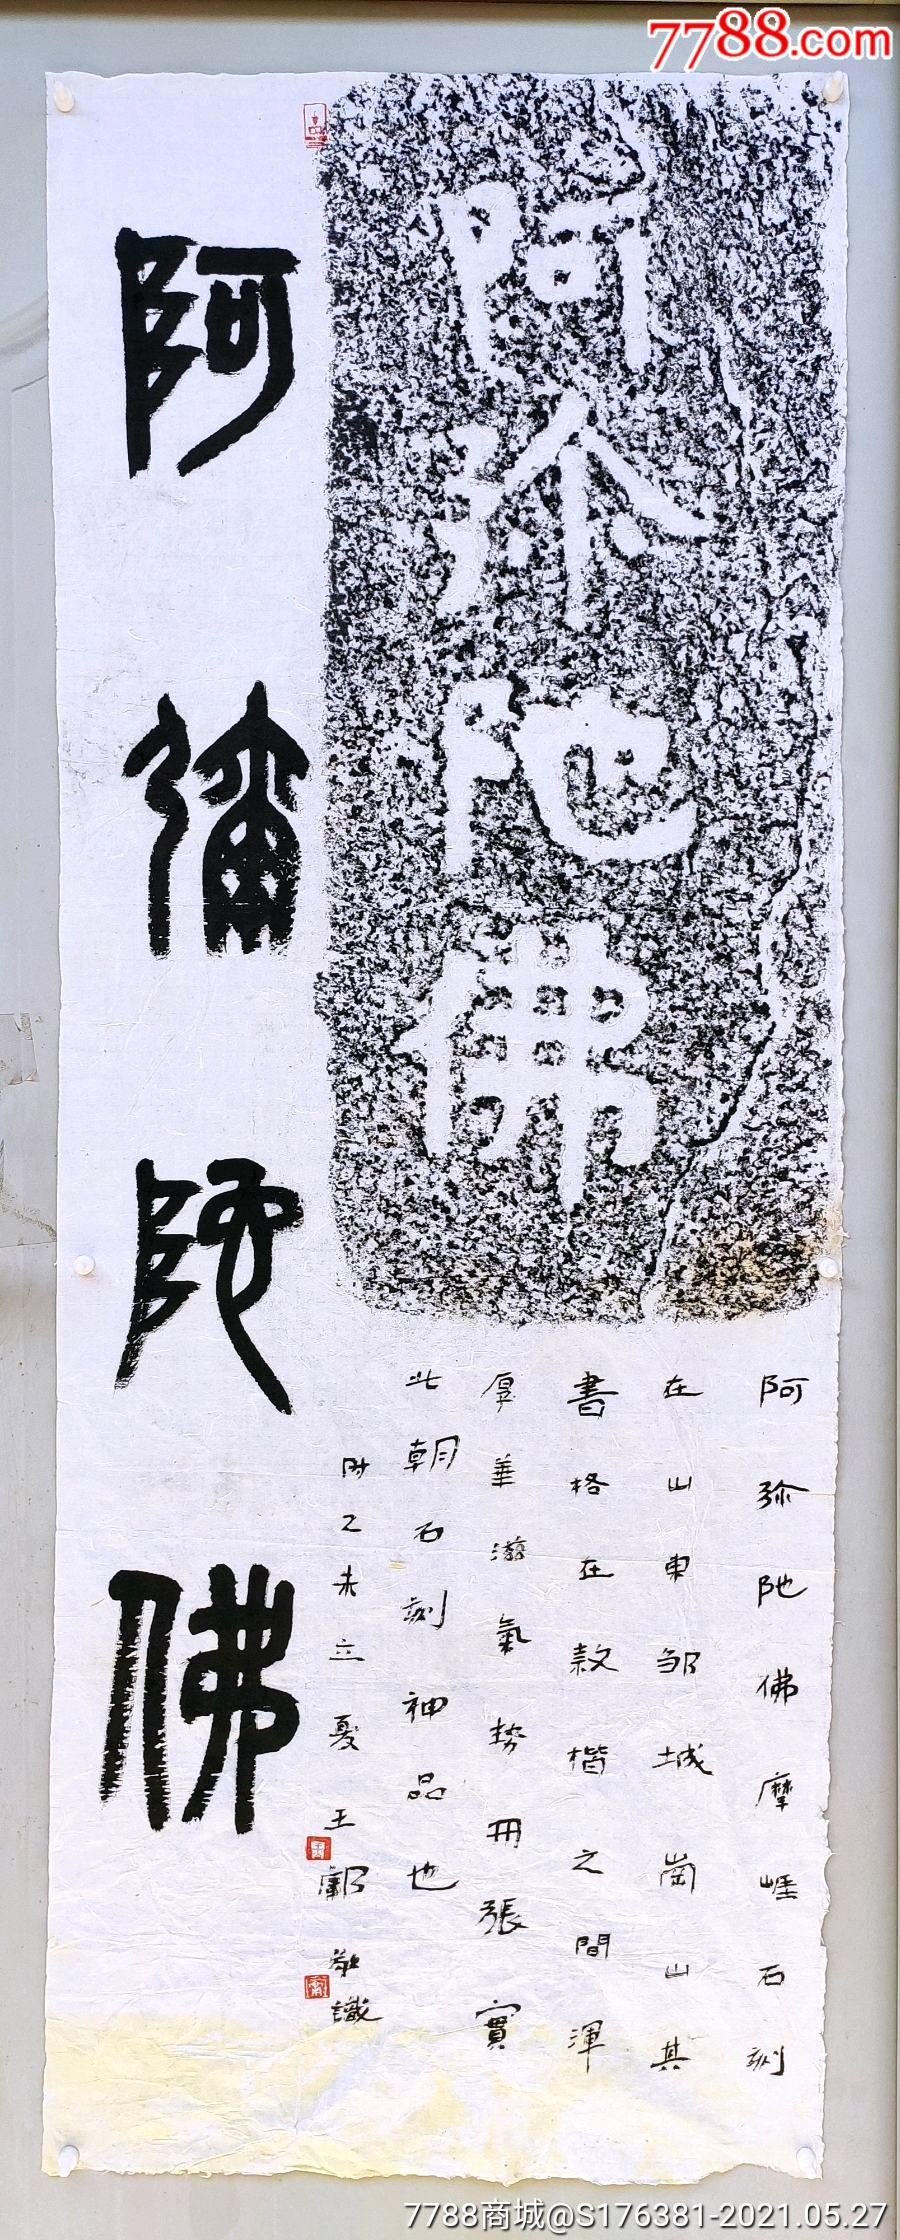 7788.com
阿弥陀佛
阿弥陀佛摩崖石刻
在山東邹城崗山其
書格在隸楷之間渾
厚華滋氣势開張實
北朝石刻神品也
时乙未立夏王 敬識
阿彌陀佛
7788商城@S176381-2021.05.27